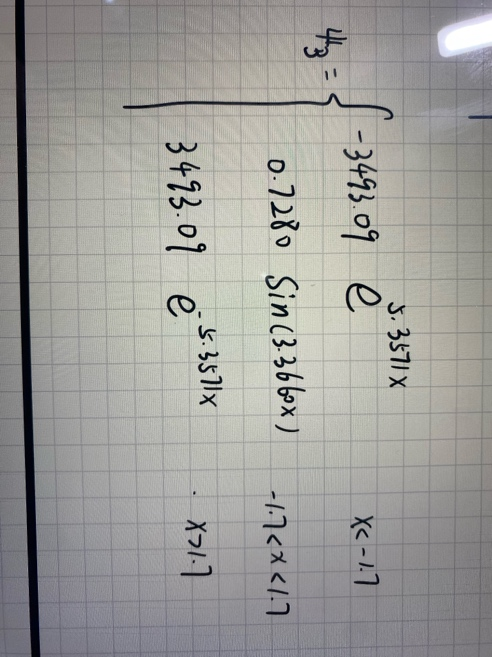 ψ₃ = { -3493.09 e^{5.3571x} x<-1.7
0.7280 Sin(3.3660x) -1.7<x<1.7
3493.09 e^{-5.3571x} x>1.7